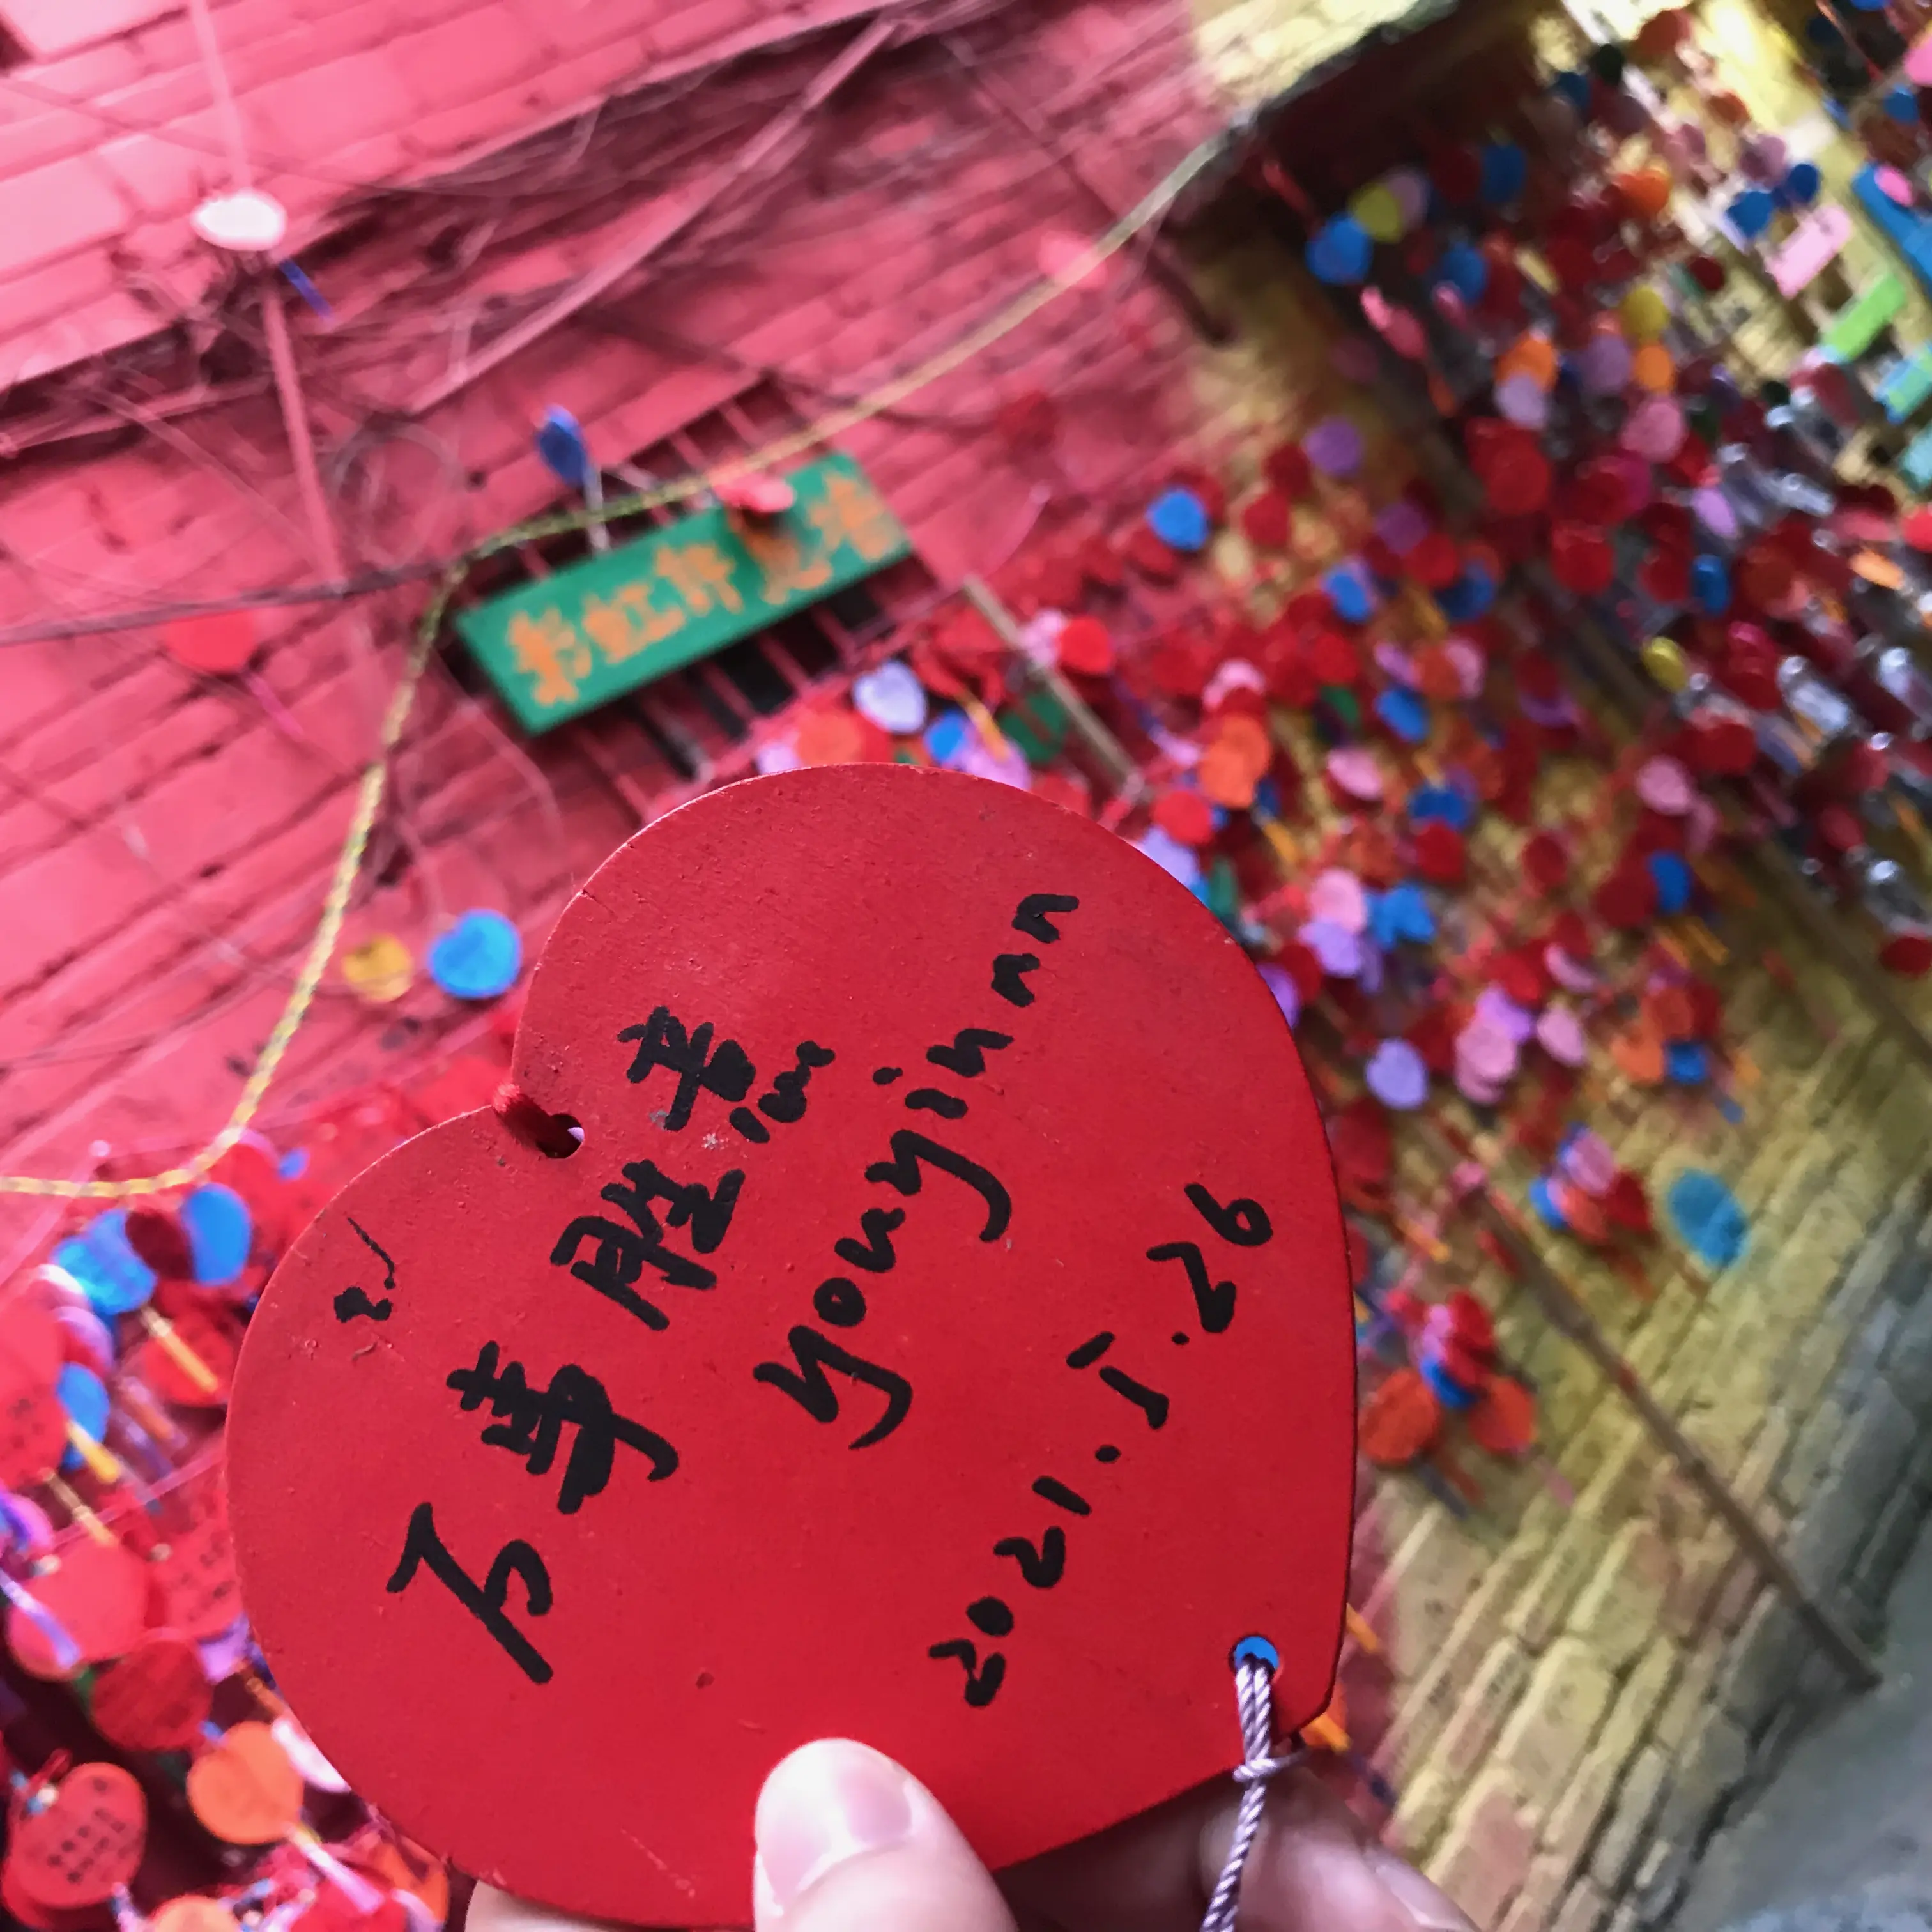 彩虹许愿墙
万事胜意
youyjinnn
2021.5.26